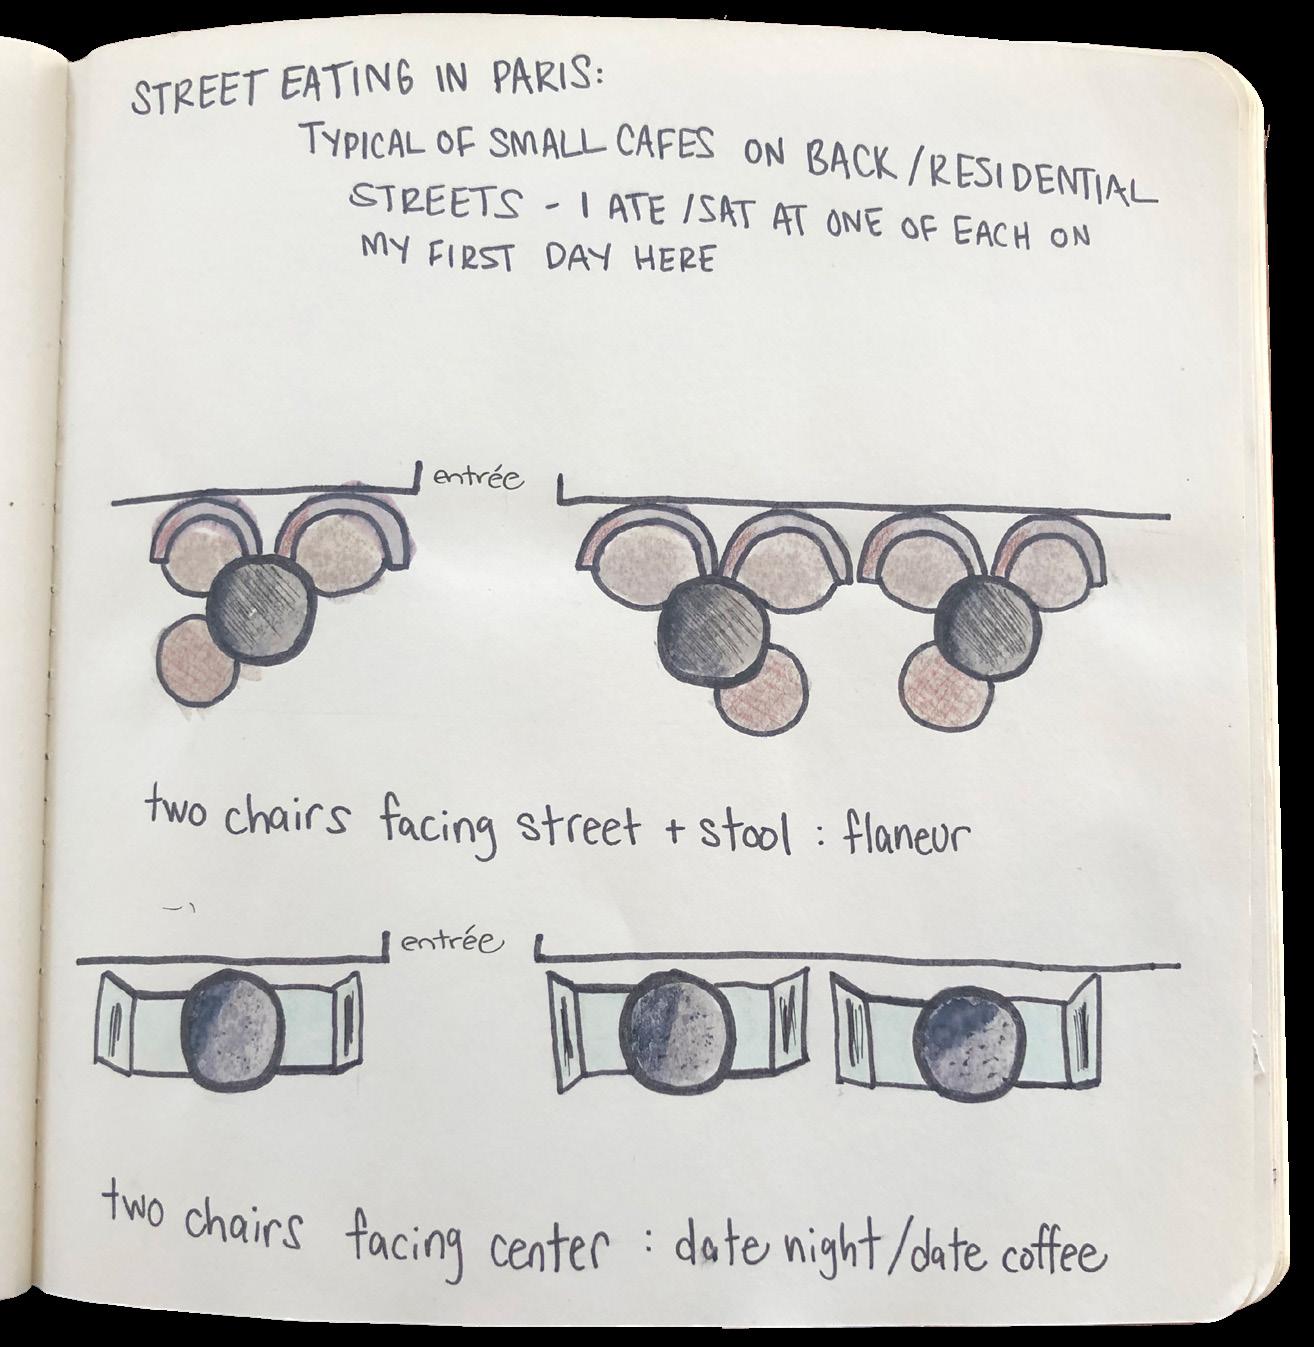 STREET EATING IN PARIS:
TYPICAL OF SMALL CAFES ON BACK/RESIDENTIAL
STREETS - I ATE/SAT AT ONE OF EACH ON
MY FIRST DAY HERE
entrée
two chairs facing street + stool : flaneur
entrée
two chairs facing center : date night/date coffee